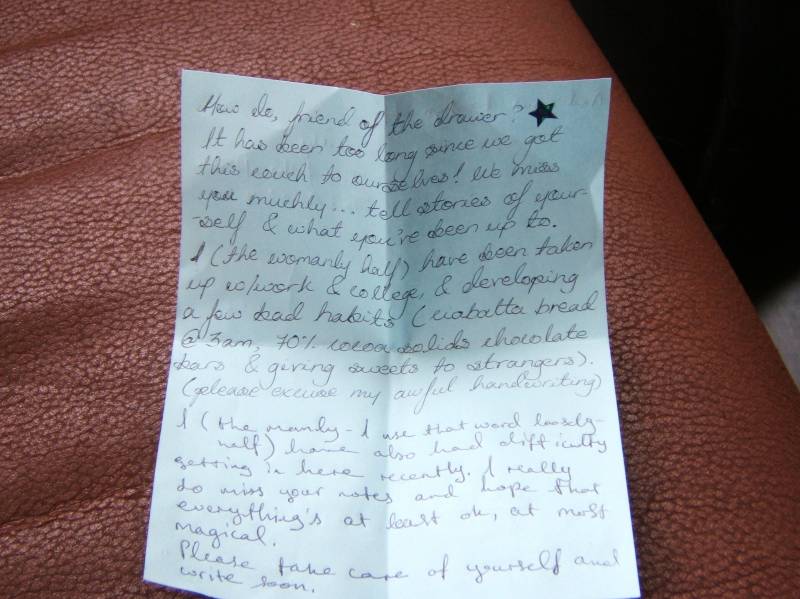 How do, friend of the drawer? ★
It has been too long since we got
this couch to ourselves! We miss
you muchly... tell stories of your-
-self & what you've been up to.
I (the womanly half) have been taken
up w/work & college, & developing
a few bad habits (ciabatta bread
@ 3am, 70% cocoa solids chocolate
bars & giving sweets to strangers).
(please excuse my awful handwriting)
I (the manly - I use that word loosely-
half) have also had difficulty
getting in here recently. I really
do miss your notes and hope that
everything's at least ok, at most
magical.
Please take care of yourself and
write soon.